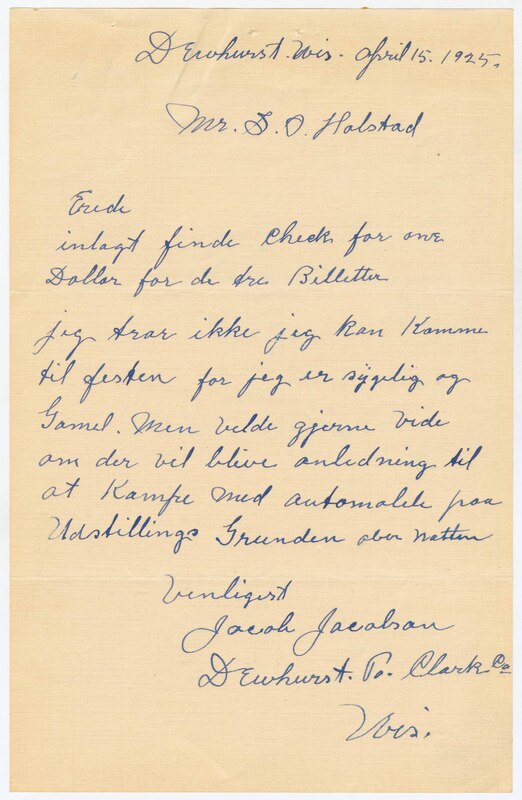 Dewhurst. Wis. April 15. 1925.
Mr. S. O. Holstad
Erede
inlagt finde Check for one
Dollar for de tre Billetter
jeg tror ikke jeg kan Komme
til festen for jeg er sygelig og
Gamel. Men velde gjerne vide
om der vil blive anledning til
at Kampe med automobile paa
Udstillings Grunden over natten
Venligest
Jacob Jacobson
Dewhurst. Po. Clark Co
Wis.